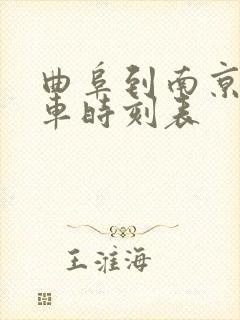 曲阜到南京
車時刻表
王淮海